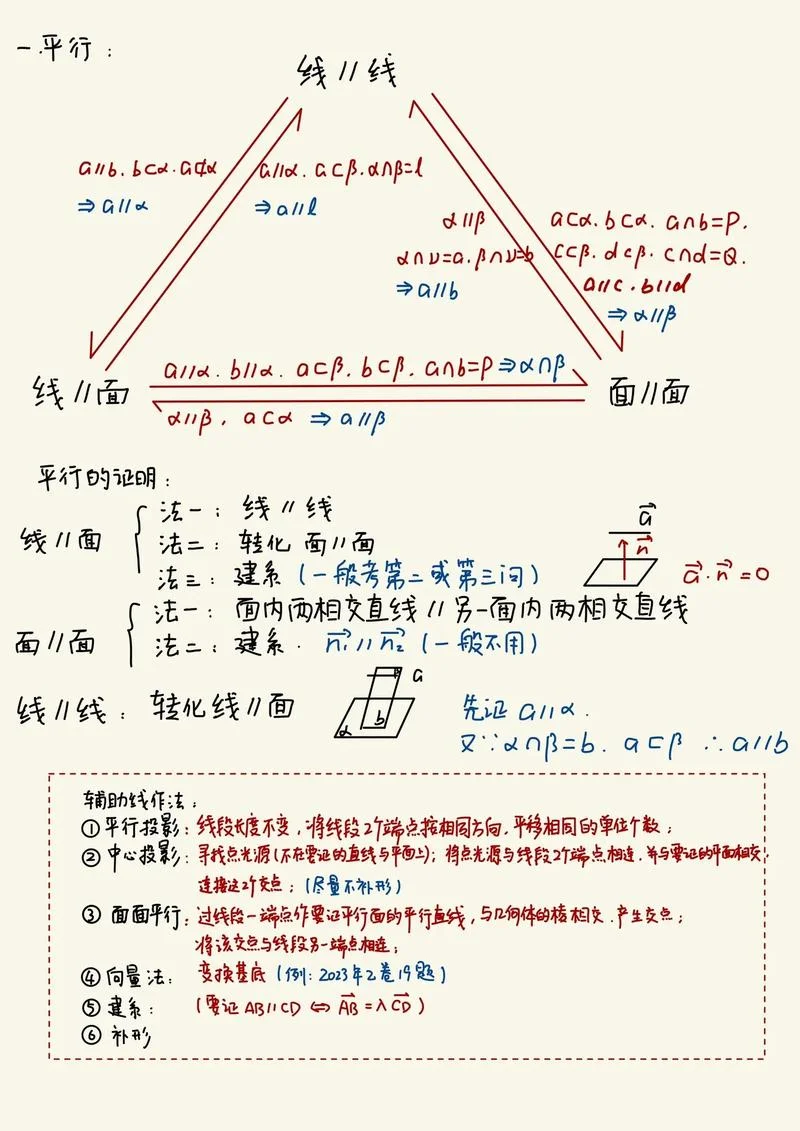 一.平行:
线∥线
a∥b.b⊂α.a⊄α
⇒a∥α
a∥α.a⊂β.α∩β=l
⇒a∥l
α∥β
α∩ν=a.β∩ν=b
⇒a∥b
a⊂α.b⊂α.a∩b=P.
c⊂β.d⊂β.c∩d=Q.
a∥c.b∥d
⇒α∥β
a∥α.b∥α.a⊂β.b⊂β.a∩b=P⇒α∩β
线∥面
面∥面
α∥β,a⊂α ⇒a∥β
平行的证明:
线∥面
法一:线∥线
法二:转化 面∥面
法三:建系(一般考第二或第三问)
a⃗
n⃗
a⃗·n⃗=0
面∥面
法一:面内两相交直线∥另一面内两相交直线
法二:建系.n₁⃗∥n₂⃗(一般不用)
线∥线:转化线∥面
a
b
α
β
先证a∥α.
又∵α∩β=b.a⊂β ∴a∥b
辅助线作法:
①平行投影:线段长度不变,将线段2个端点按相同方向,平移相同的单位个数;
②中心投影:寻找点光源(不在要证的直线与平面上);将点光源与线段2个端点相连.并与要证的平面相交,
连接这2个交点;(尽量不补形)
③面面平行:过线段一端点作要证平行面的平行直线,与几何体的棱相交.产生交点;
将该交点与线段另一端点相连;
④向量法:变换基底(例:2023年2卷19题)
⑤建系:(要证AB∥CD⇔AB⃗=λCD⃗)
⑥补形